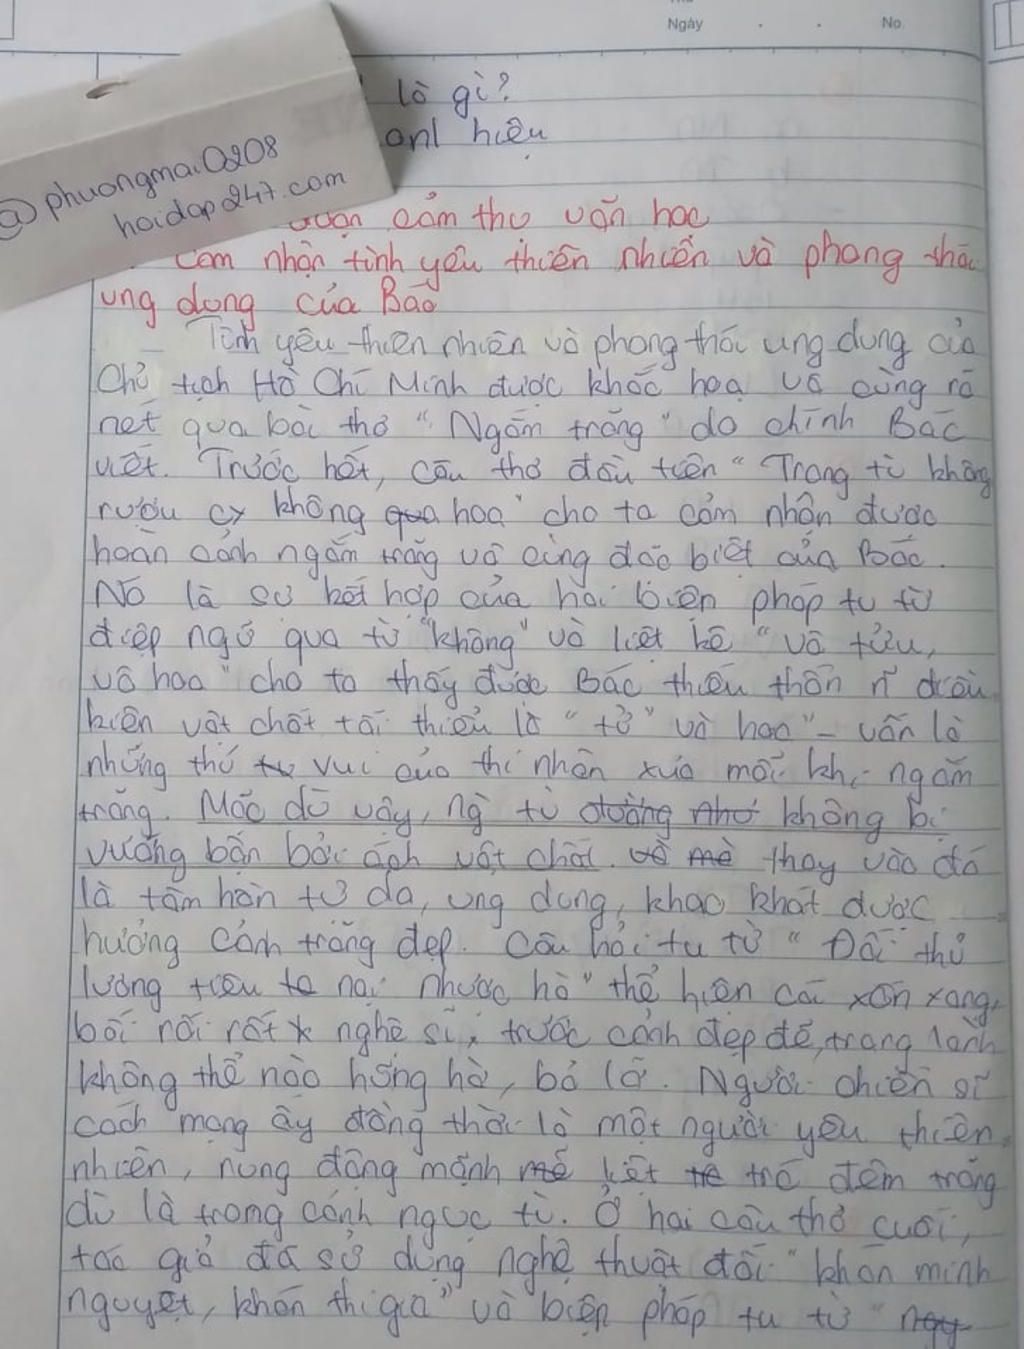 Ngày . . No.
là gì?
onl hiệu
@phuongmai0208
hoidap247.com
đoạn cảm thụ văn học
Cảm nhận tình yêu thiên nhiên và phong thái
ung dung của Bác
_ Tình yêu thiên nhiên và phong thái ung dung của
Chủ tịch Hồ Chí Minh được khắc hoạ vô cùng rõ
nét qua bài thơ "Ngắm trăng" do chính Bác
viết. Trước hết, câu thơ đầu tiên "Trong tù không
rượu cx không qua hoa" cho ta cảm nhận được
hoàn cảnh ngắm trăng vô cùng đặc biệt của Bác.
Nó là sự kết hợp của hai biện pháp tu từ
điệp ngữ qua từ "không" và liệt kê "vô tửu,
vô hoa" cho ta thấy được Bác thiếu thốn n~ điều
kiện vật chất tối thiểu là "tử" và hoa" - vốn là
những thứ vui của thi nhân xưa mỗi khi ngắm
trăng. Mặc dù vậy, ng` tù đường như không bị
vướng bận bởi ách vật chất. về mà thay vào đó
là tâm hồn tự do, ung dung, khao khát được
hưởng cảnh trăng đẹp. Câu hỏi tu từ "Đối thử
lương tiêu ta nại nhược hà" thể hiện cái xốn xang,
bối rối rất nghệ sĩ, trước cảnh đẹp đẽ, trong lành
không thể nào hững hờ, bỏ lỡ. Người chiến sĩ
cách mạng ấy đồng thời là một người yêu thiên
nhiên, rung động mãnh mẽ liệt trc đêm trăng
dù là trong cảnh ngục tù. Ở hai câu thơ cuối,
tác giả đã sử dụng nghệ thuật đối "khán minh
nguyệt, khán thi gia" và biện pháp tu từ "